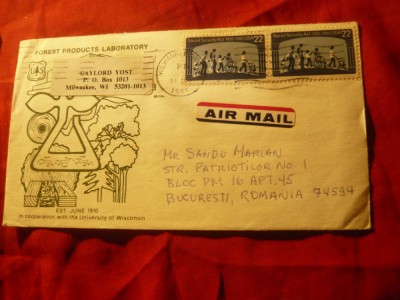 FOREST PRODUCTS LABORATORY
GAYLORD YOST
P. O. Box 1013
Milwaukee, WI 53201-1013
Social Security Act 22
Social Security Act 22
AIR MAIL
MR SANDU MARIAN
STR. PATRIOTILOR NO. 1
BLOC PM 16 APT. 45
BUCURESTI, ROMANIA 74594
EST. JUNE 1910
In cooperation with the University of Wisconsin